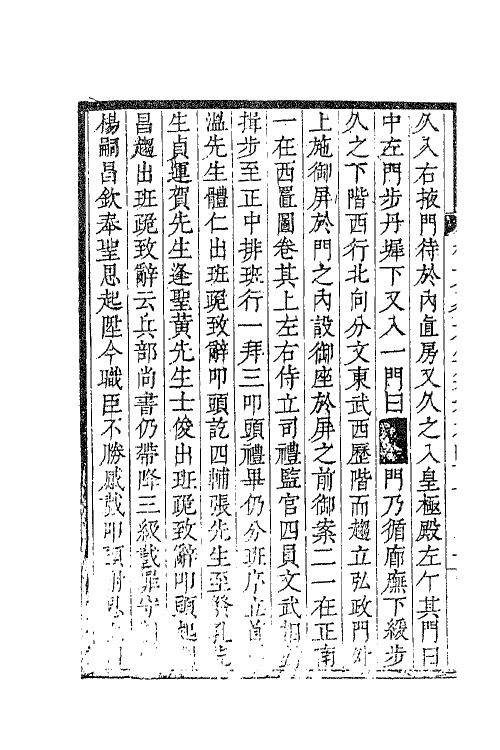 久入右掖門待於內直房又久之入皇極殿左个其門曰
中左門步丹墀下又入一門曰門乃循廊廡下緩步
久之下階西行北向分文東武西歷階而趨立弘政門外
上施御屏於門之內設御座於屏之前御案二一在正南
一在西置圖卷其上左右侍立司禮監官四員文武相
揖步至正中排班行一拜三叩頭禮畢仍分班序立首
溫先生體仁出班跪致辭叩頭訖四輔張先生至發孔先
生貞運賀先生逢聖黃先生士俊出班跪致辭叩頭起
昌趨出班跪致辭云兵部尚書仍帶降三級戴罪守
楊嗣昌欽奉聖恩起陞今職臣不勝感戴叩頭謝恩